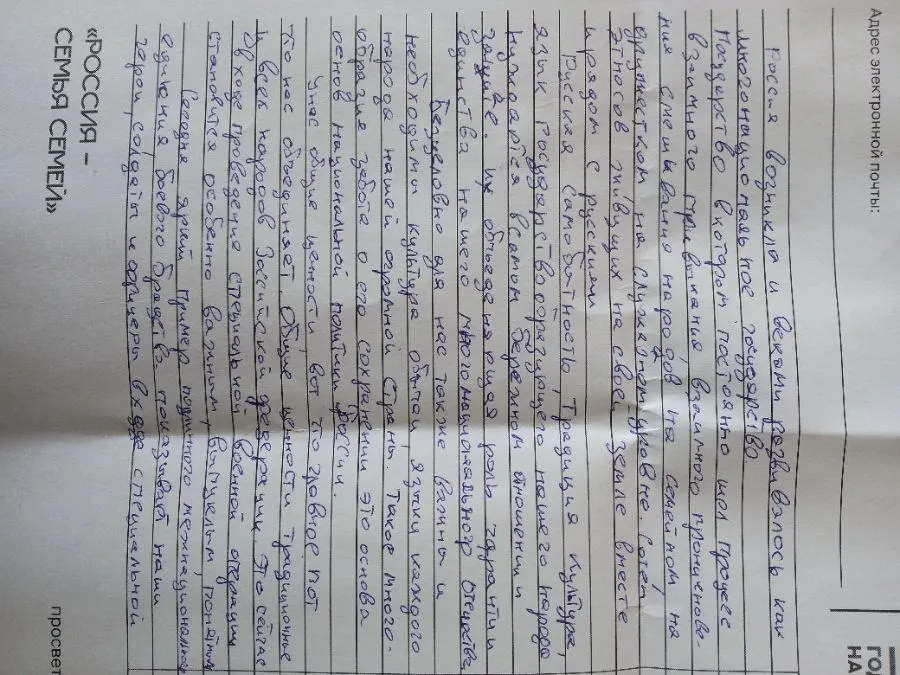 ГОД
НА
Адрес электронной почты:
Росия возникла и веками розвивалось как
многонациональное госудорство.
Посударство в котором постояно шол процесс
взаимного привыкания, взаимного проникнове-
ния смешивания народов на семейном, на
дружетском на служебном уровне. Сотен
этносов живущих на своей земле вместе
и рядом с русскими
Русская самобытность, традиция культура,
язык Государствообразующего нашего народа
нуждаются в самом бережном отношении и
защите. их объеденяющая роль гарантии
единства нашего многонационального отечества
Безусловно для нас также важны и
необходимы культура обычаи, языки каждого
народа нашей огромной страны. Такое много-
образия забота о его сохранении это основа
основ национальной политики Росси.
У нас общие ценности, вот что главное.
что нас объединяет общие ценности традиционные
и всех народов Российской федерации. Это сейчас
в ходе проведения специальной военной операции
становится особенно важным, выпуклым, понятным
Сегодня яркий пример подлиного межнационального
единения боевого братства показывают наши
герои, солдаты и офицеры в ходе специальной
«РОССИЯ –
СЕМЬЯ СЕМЕЙ»
просвет